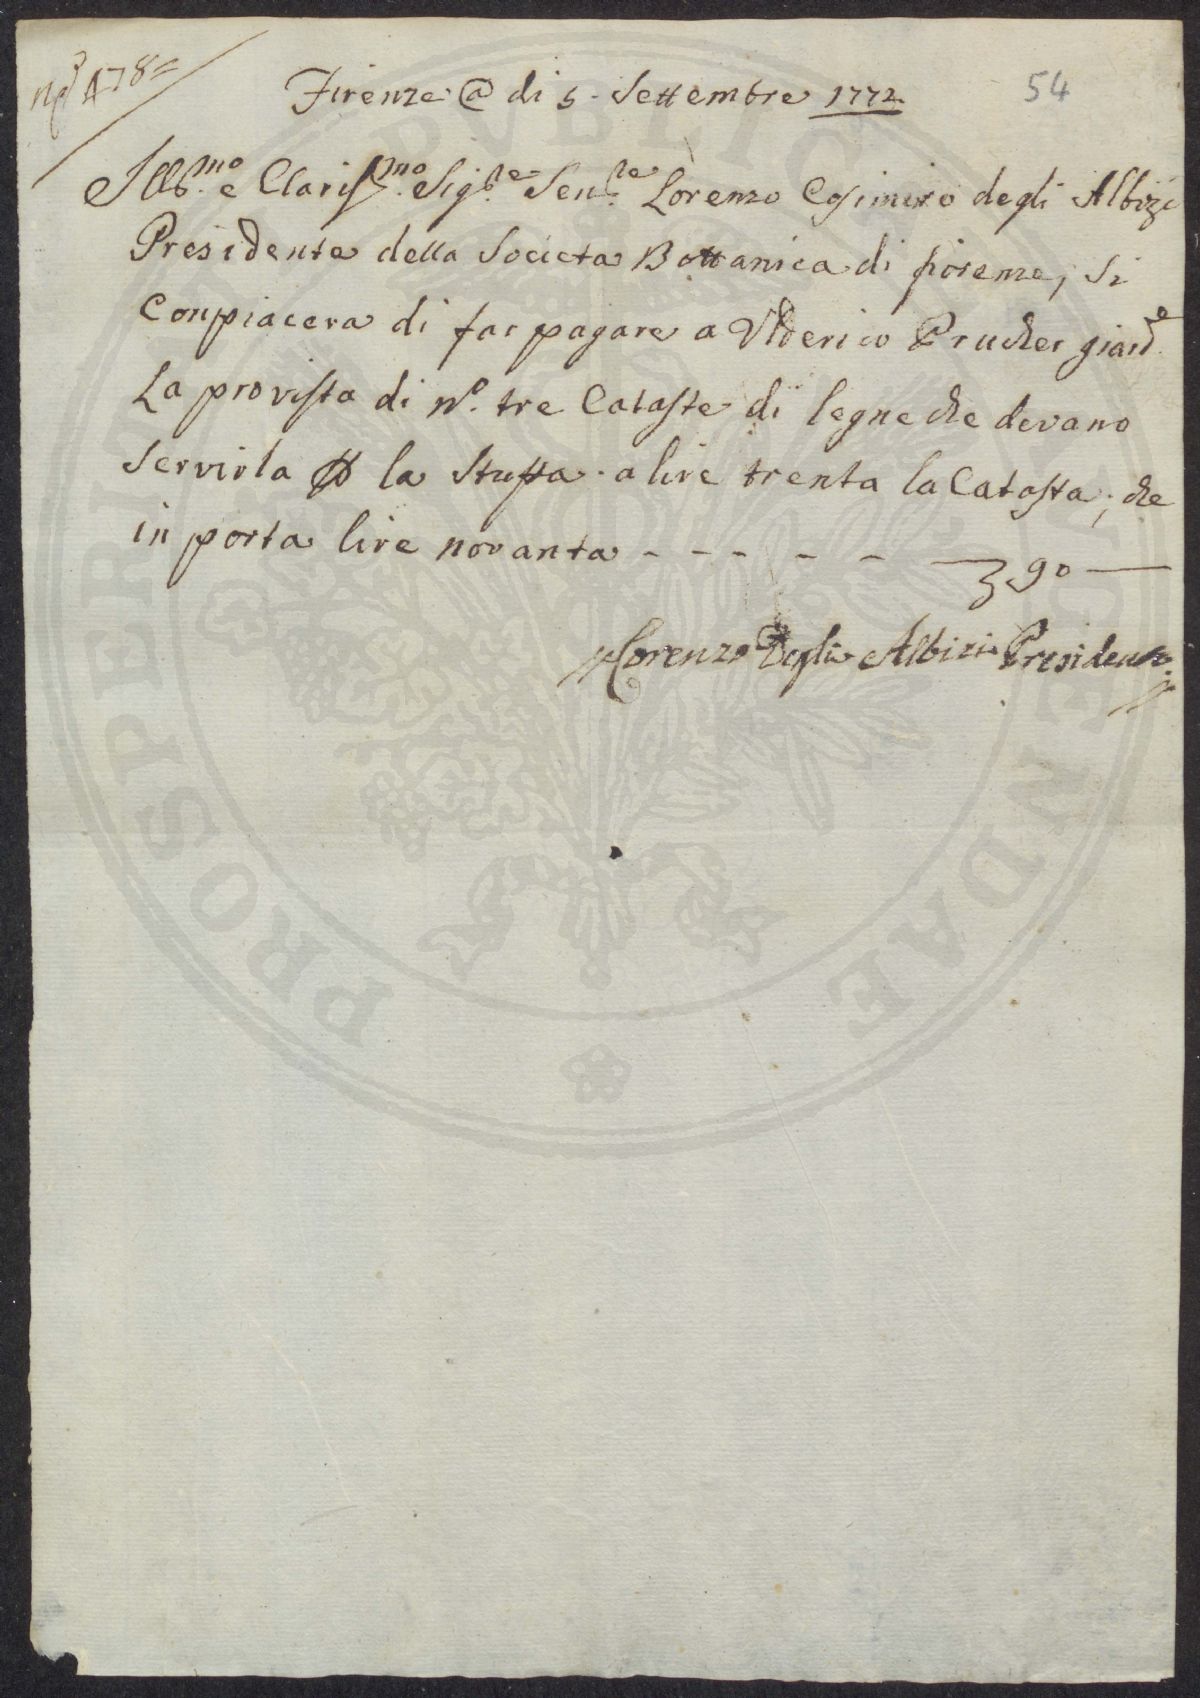 478
54
Firenze @ di 5. Settembre 1772.
Ill.mo e Claris.mo Sig.re Sen.re Lorenzo Cosimero degli Albizi
Presidente della Societa Bottanica di fiorenze, Si
Conpiacera di far pagare a Vlderico Prucher giard.e
La provista di n.o tre Cataste di legne che devano
Servirla p la Stuffa. a lire trenta la Catasta; che
in porta lire novanta - - - - - 90
Lorenzo Degli Albizi Presidente
PVBLICAE
PROSPERITATI
NDAE